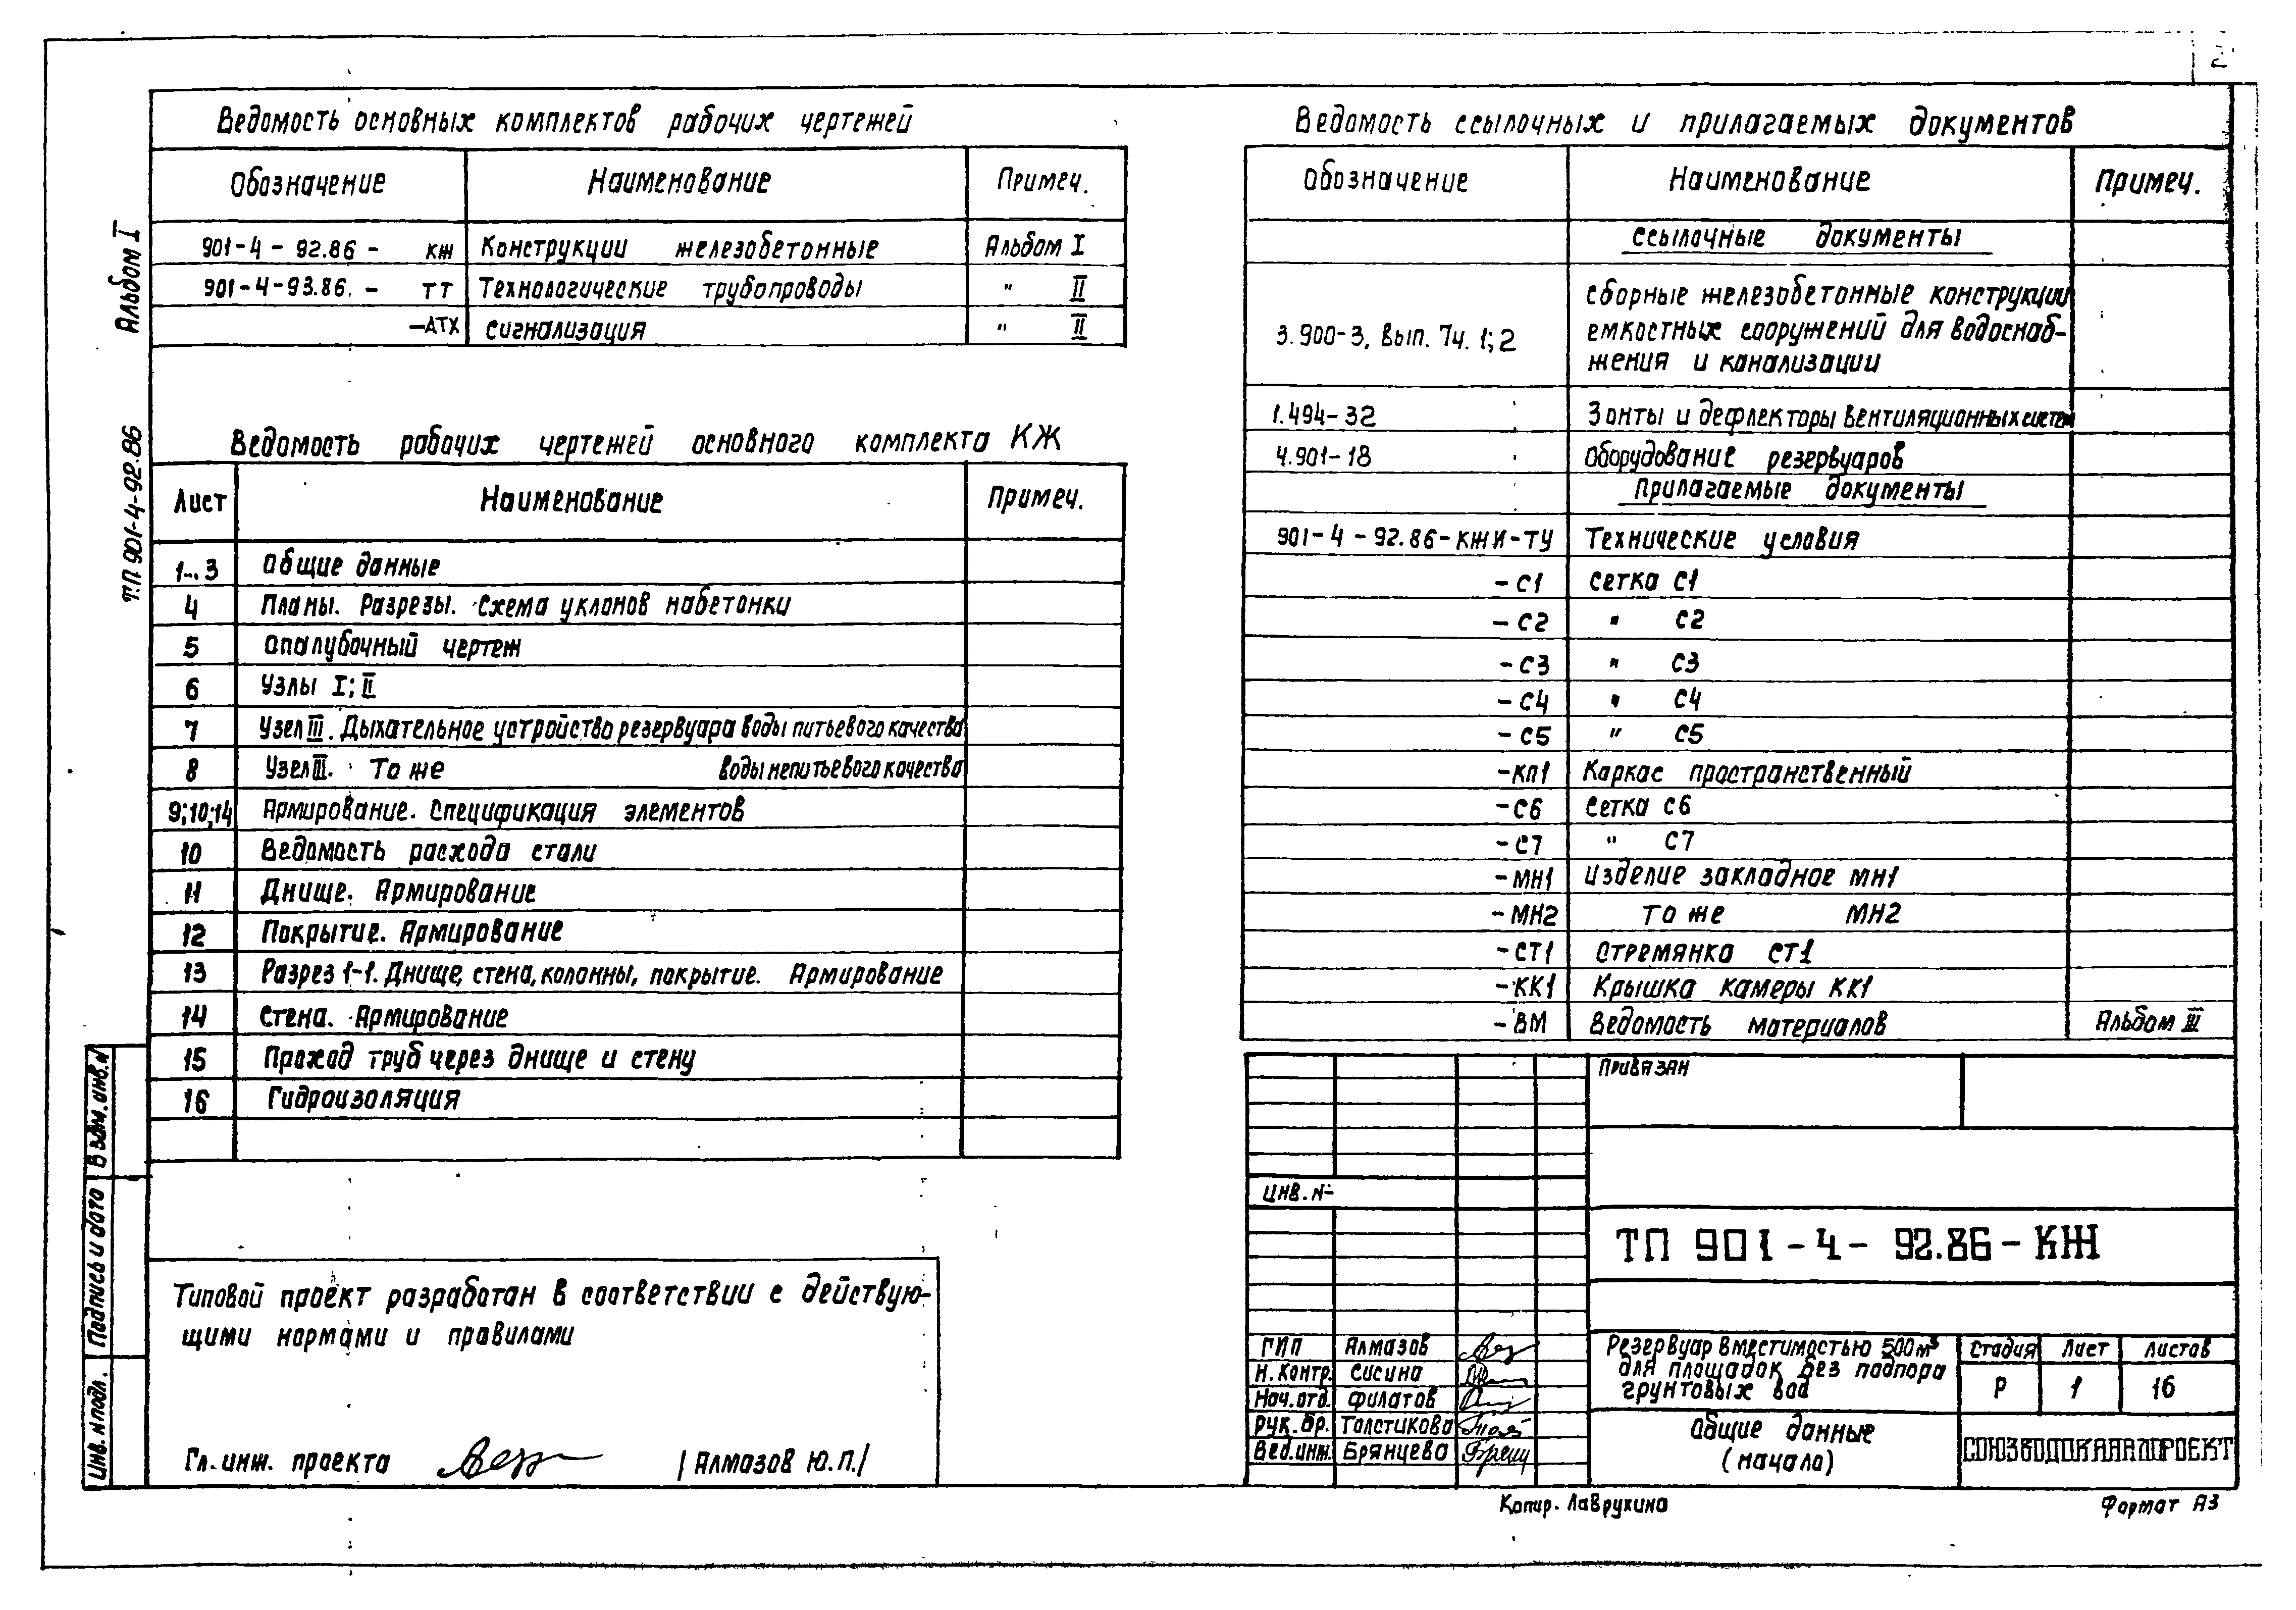 2
Альбом I
Т.П. 901-4-92.86
Ведомость основных комплектов рабочих чертежей
Обозначение Наименование Примеч.
901-4-92.86- КЖ Конструкции железобетонные Альбом I
901-4-93.86. - ТТ Технологические трубопроводы " II
-АТХ Сигнализация " II
Ведомость рабочих чертежей основного комплекта КЖ
Лист Наименование Примеч.
1...3 Общие данные
4 Планы. Разрезы. Схема уклонов набетонки
5 Опалубочный чертеж
6 Узлы I; II
7 Узел III. Дыхательное устройство резервуара воды питьевого качества
8 Узел III. То же воды непитьевого качества
9;10;14 Армирование. Спецификация элементов
10 Ведомость расхода стали
11 Днище. Армирование
12 Покрытие. Армирование
13 Разрез 1-1. Днище, стена, колонны, покрытие. Армирование
14 Стена. Армирование
15 Проход труб через днище и стену
16 Гидроизоляция
Типовой проект разработан в соответствии с действую-
щими нормами и правилами
Гл. инж. проекта /Алмазов Ю.П./
Взам. инв. №
Подпись и дата
Инв. № подл.
Ведомость ссылочных и прилагаемых документов
Обозначение Наименование Примеч.
Ссылочные документы
Сборные железобетонные конструкции
3.900-3, Вып. 7ч. 1; 2 емкостных сооружений для водоснаб-
жения и канализации
1.494-32 Зонты и дефлекторы вентиляционных систем
4.901-18 Оборудование резервуаров
Прилагаемые документы
901-4-92.86-КЖИ-ТУ Технические условия
-С1 Сетка С1
-С2 " С2
-С3 " С3
-С4 " С4
-С5 " С5
-КП1 Каркас пространственный
-С6 Сетка С6
-С7 " С7
-МН1 Изделие закладное МН1
-МН2 То же МН2
-СТ1 Стремянка СТ1
-КК1 Крышка камеры КК1
-ВМ Ведомость материалов Альбом III
Привязан
Инв. №
ТП 901-4-92.86-КЖ
ГИП Алмазов
Н. Контр. Сисина
Нач. отд. Филатов
Рук. бр. Толстикова
Вед. инж. Брянцева
Резервуар вместимостью 500 м³
для площадок без подпора
грунтовых вод
Стадия Лист Листов
Р 1 16
Общие данные
(начало)
СОЮЗВОДОКАНАЛПРОЕКТ
Копир. Лаврухина
Формат А3